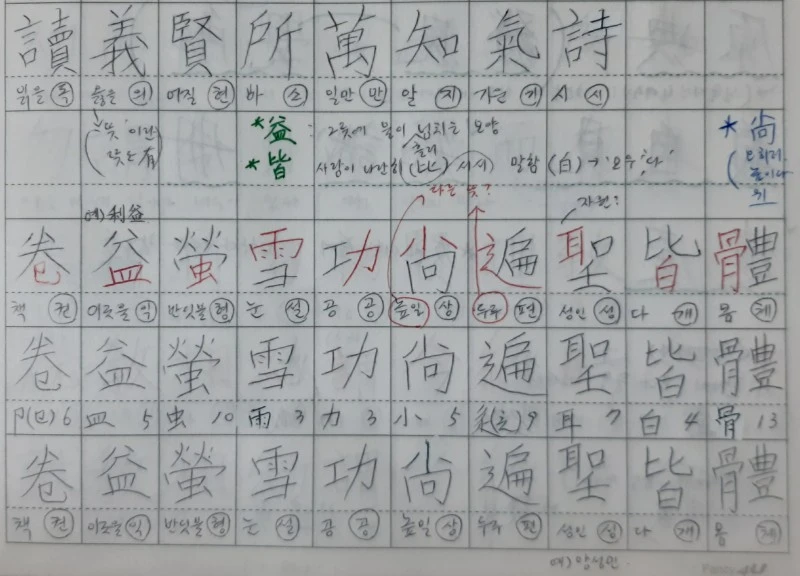 讀 義 賢 所 萬 知 氣 詩
읽을 독 옳을 의 어질 현 바 소 일만 만 알 지 기운 기 시 시
'뜻' 이란 뜻도 有
*益 : 그릇에 물이 넘치는 모양
*皆 사람이 나란히 (比) 서서 말함 (白) → '모두', '다'
*尙 오히려 높이다
예) 利益
다른 뜻?
자원?
卷 益 螢 雪 功 尙 遍 聖 皆 體
책 권 이로울 익 반딧불 형 눈 설 공 공 높일 상 두루 편 성인 성 다 개 몸 체
卷 益 螢 雪 功 尙 遍 聖 皆 體
卩(㔾) 6 皿 5 虫 10 雨 3 力 3 小 5 辵(辶) 9 耳 7 白 4 骨 13
卷 益 螢 雪 功 尙 遍 聖 皆 體
책 권 이로울 익 반딧불 형 눈 설 공 공 높일 상 두루 편 성인 성 다 개 몸 체